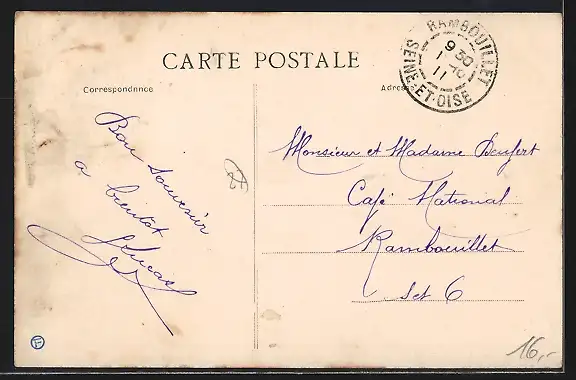 CARTE POSTALE
Correspondnnce
Adresse
RAMBOUILLET
9 30
1 - 10
11
SEINE-ET-OISE
Bon souvenir
a bientôt
Lucas
Monsieur et Madame Deufert
Café National
Rambouillet
Set O
16,-